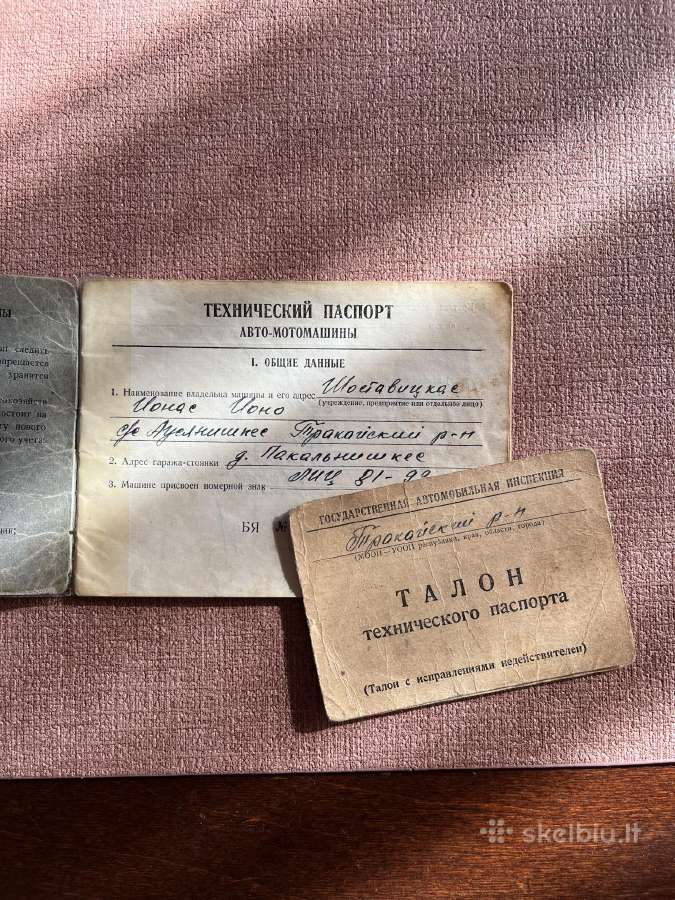 ТЕХНИЧЕСКИЙ ПАСПОРТ
АВТО-МОТОМАШИНЫ
I. ОБЩИЕ ДАННЫЕ
1. Наименование владельца машины и его адрес Шоставицкас
(учреждение, предприятие или отдельное лицо)
Ионас Ионо
с/с Аусянишкес Тракайский р-н
2. Адрес гаража-стоянки д. Пакальнишкес
3. Машине присвоен номерной знак ЛИЦ 81-99
БЯ №
ны
следить
хранятся
на
нового
учета
ГОСУДАРСТВЕННАЯ АВТОМОБИЛЬНАЯ ИНСПЕКЦИЯ
Тракайский р-н
(МООП—УООП республики, края, области, города)
ТАЛОН
технического паспорта
(Талон с исправлениями недействителен)
skelbiu.lt